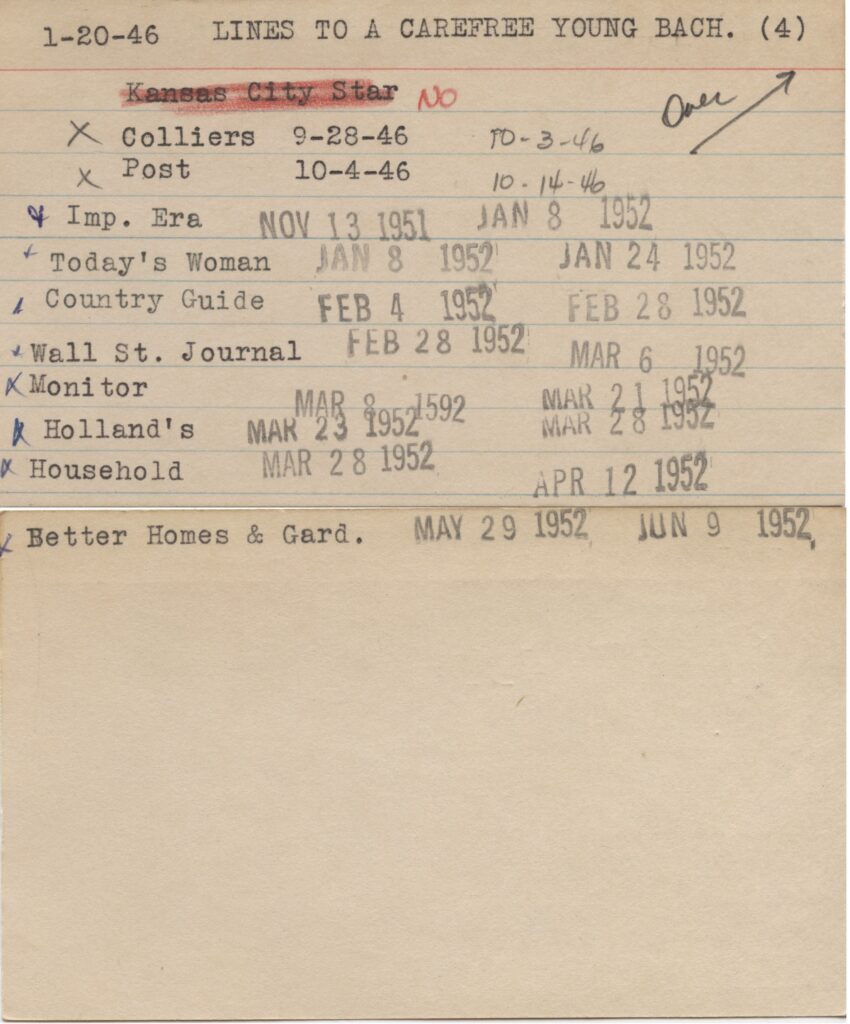 1-20-46 LINES TO A CAREFREE YOUNG BACH. (4)
Kansas City Star NO
Over
X Colliers 9-28-46 10-3-46
X Post 10-4-46 10-14-46
Imp. Era NOV 13 1951 JAN 8 1952
Today's Woman JAN 8 1952 JAN 24 1952
Country Guide FEB 4 1952 FEB 28 1952
Wall St. Journal FEB 28 1952 MAR 6 1952
X Monitor MAR 8 1592 MAR 21 1952
X Holland's MAR 23 1952 MAR 28 1952
X Household MAR 28 1952 APR 12 1952
X Better Homes & Gard. MAY 29 1952 JUN 9 1952